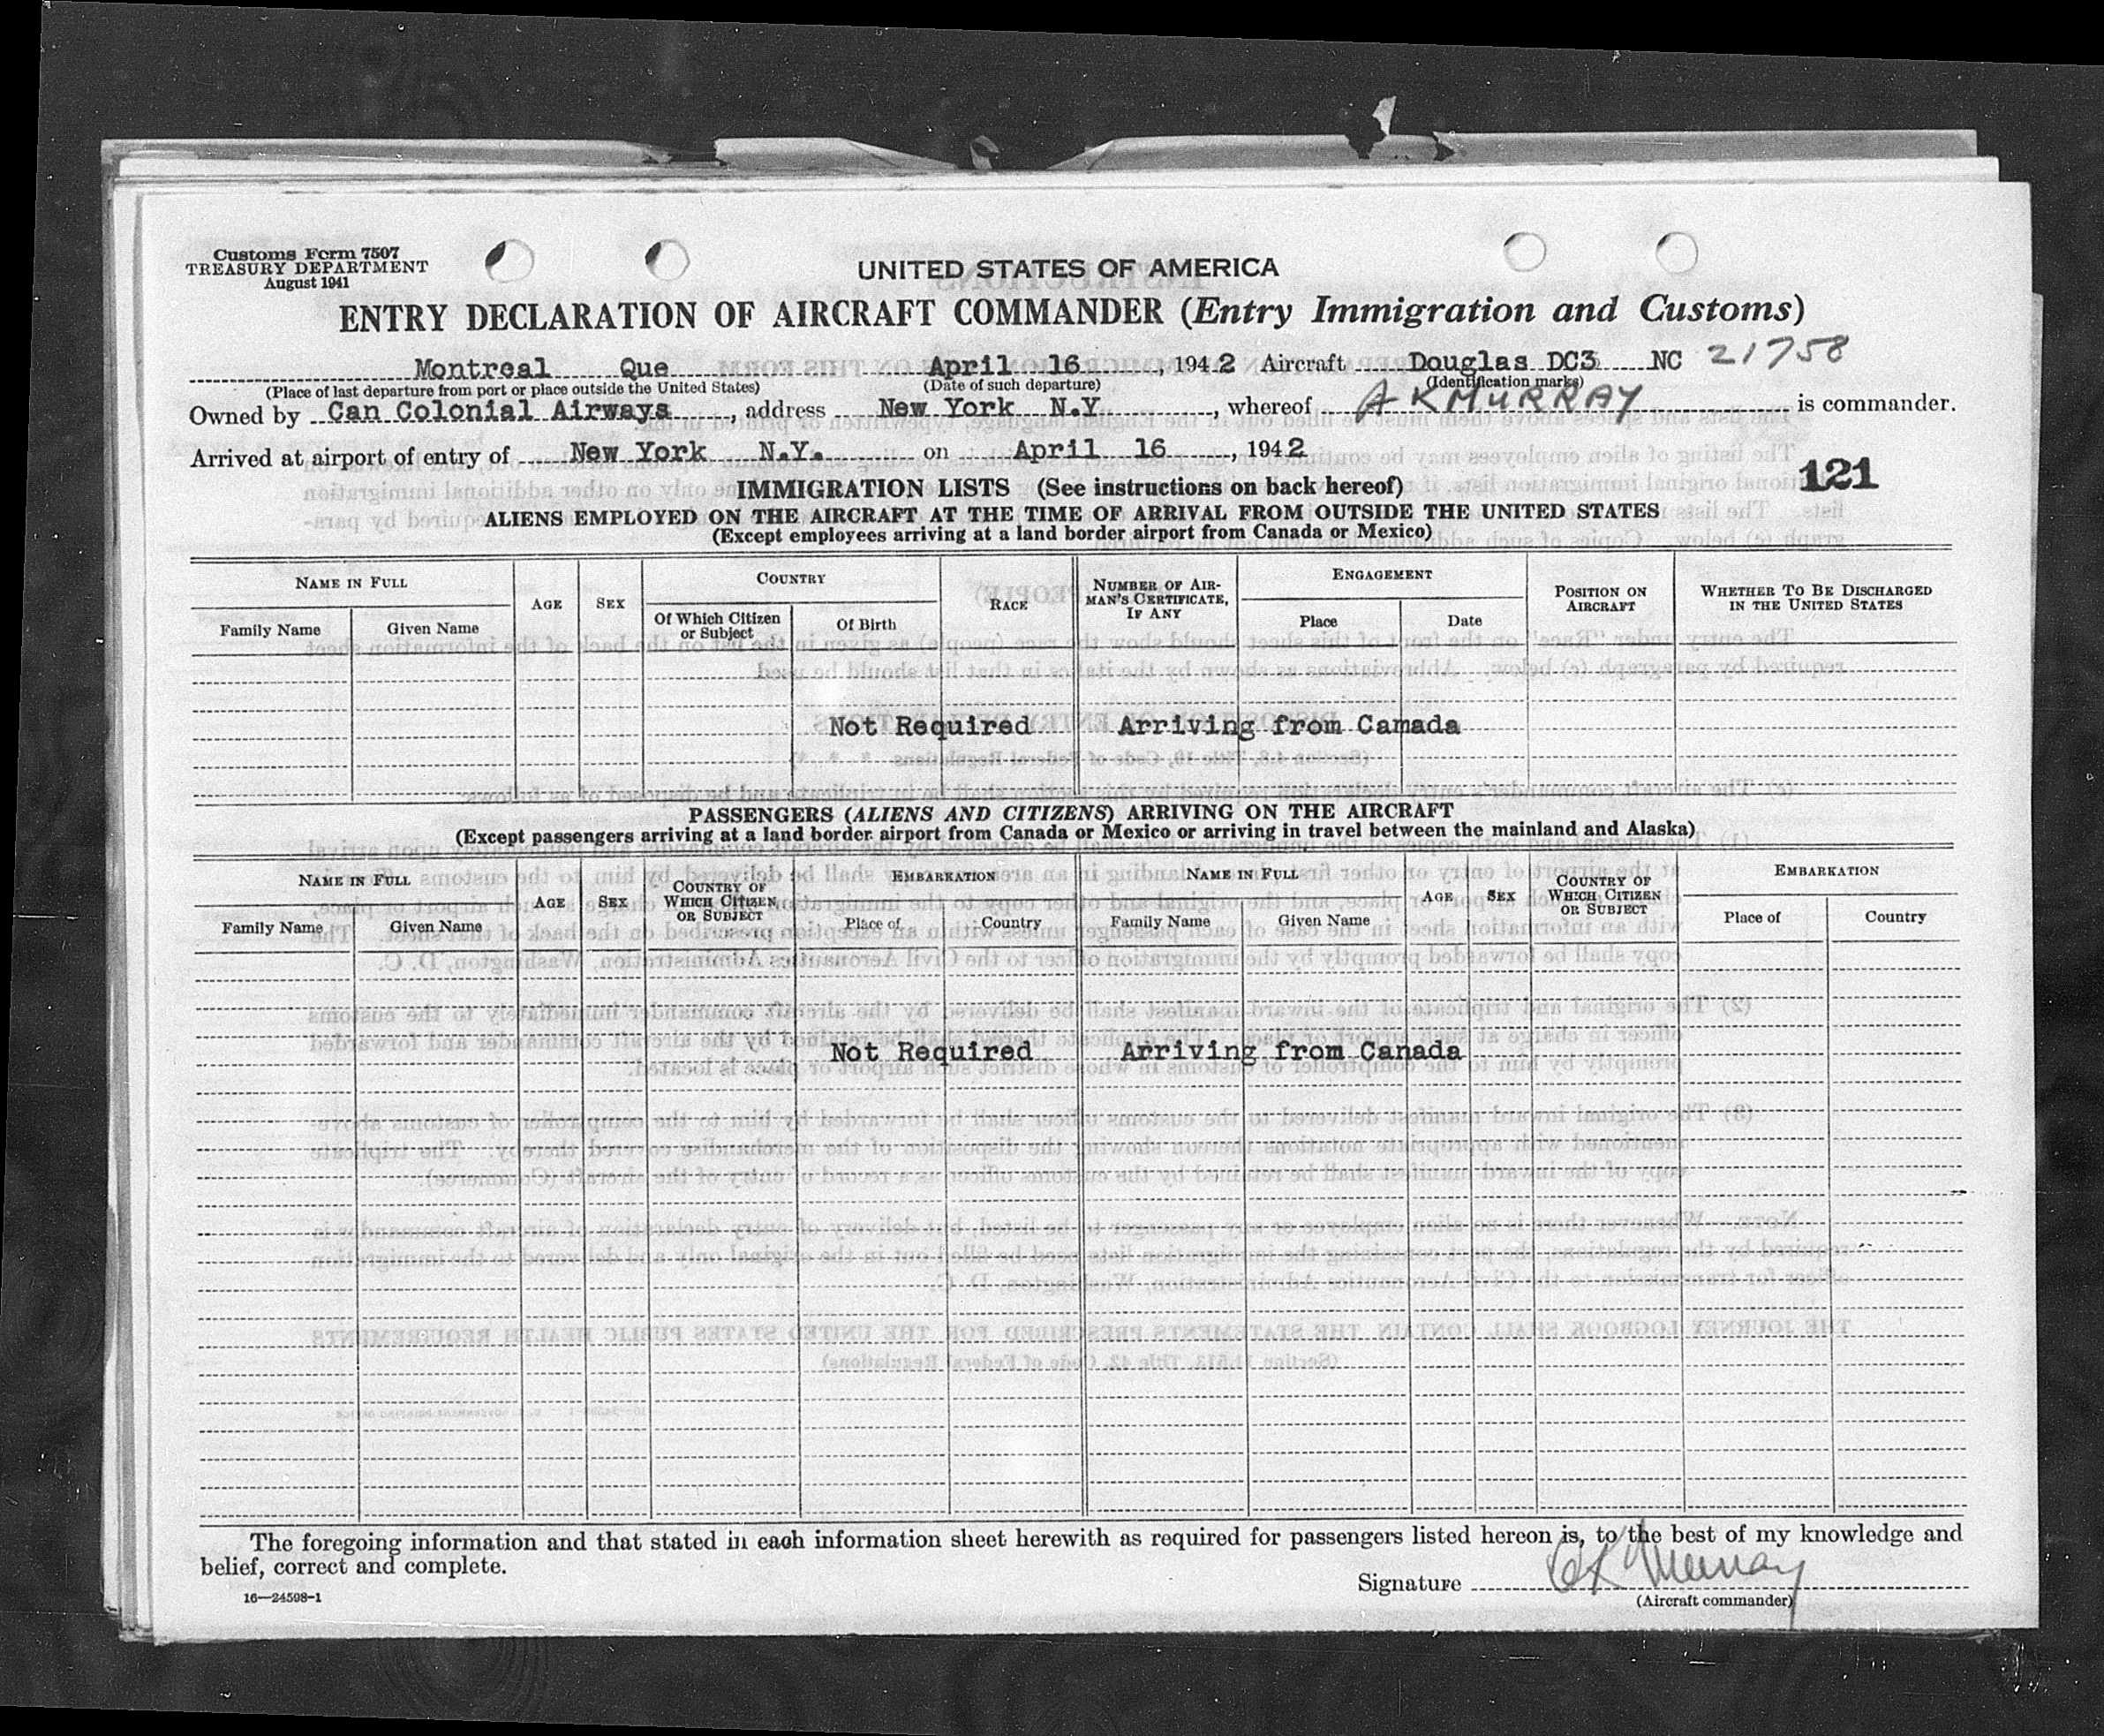 Customs Form 7507
TREASURY DEPARTMENT
August 1941
UNITED STATES OF AMERICA
ENTRY DECLARATION OF AIRCRAFT COMMANDER (Entry Immigration and Customs)
Montreal Que April 16, 1942 Aircraft Douglas DC3 NC 21758
(Place of last departure from port or place outside the United States) (Date of such departure) (Identification marks)
Owned by Can Colonial Airways, address New York N.Y., whereof A K MURRAY is commander.
Arrived at airport of entry of New York N.Y. on April 16, 1942
121
IMMIGRATION LISTS (See instructions on back hereof)
ALIENS EMPLOYED ON THE AIRCRAFT AT THE TIME OF ARRIVAL FROM OUTSIDE THE UNITED STATES
(Except employees arriving at a land border airport from Canada or Mexico)
NAME IN FULL AGE SEX COUNTRY RACE NUMBER OF AIRMAN'S CERTIFICATE, IF ANY ENGAGEMENT POSITION ON AIRCRAFT WHETHER TO BE DISCHARGED IN THE UNITED STATES
Family Name Given Name Of Which Citizen or Subject Of Birth Place Date
Not Required Arriving from Canada
PASSENGERS (ALIENS AND CITIZENS) ARRIVING ON THE AIRCRAFT
(Except passengers arriving at a land border airport from Canada or Mexico or arriving in travel between the mainland and Alaska)
NAME IN FULL AGE SEX COUNTRY OF WHICH CITIZEN OR SUBJECT EMBARKATION NAME IN FULL AGE SEX COUNTRY OF WHICH CITIZEN OR SUBJECT EMBARKATION
Family Name Given Name Place of Country Family Name Given Name Place of Country
Not Required Arriving from Canada
The foregoing information and that stated in each information sheet herewith as required for passengers listed hereon is, to the best of my knowledge and
belief, correct and complete.
Signature AK Murray
(Aircraft commander)
16—24598-1